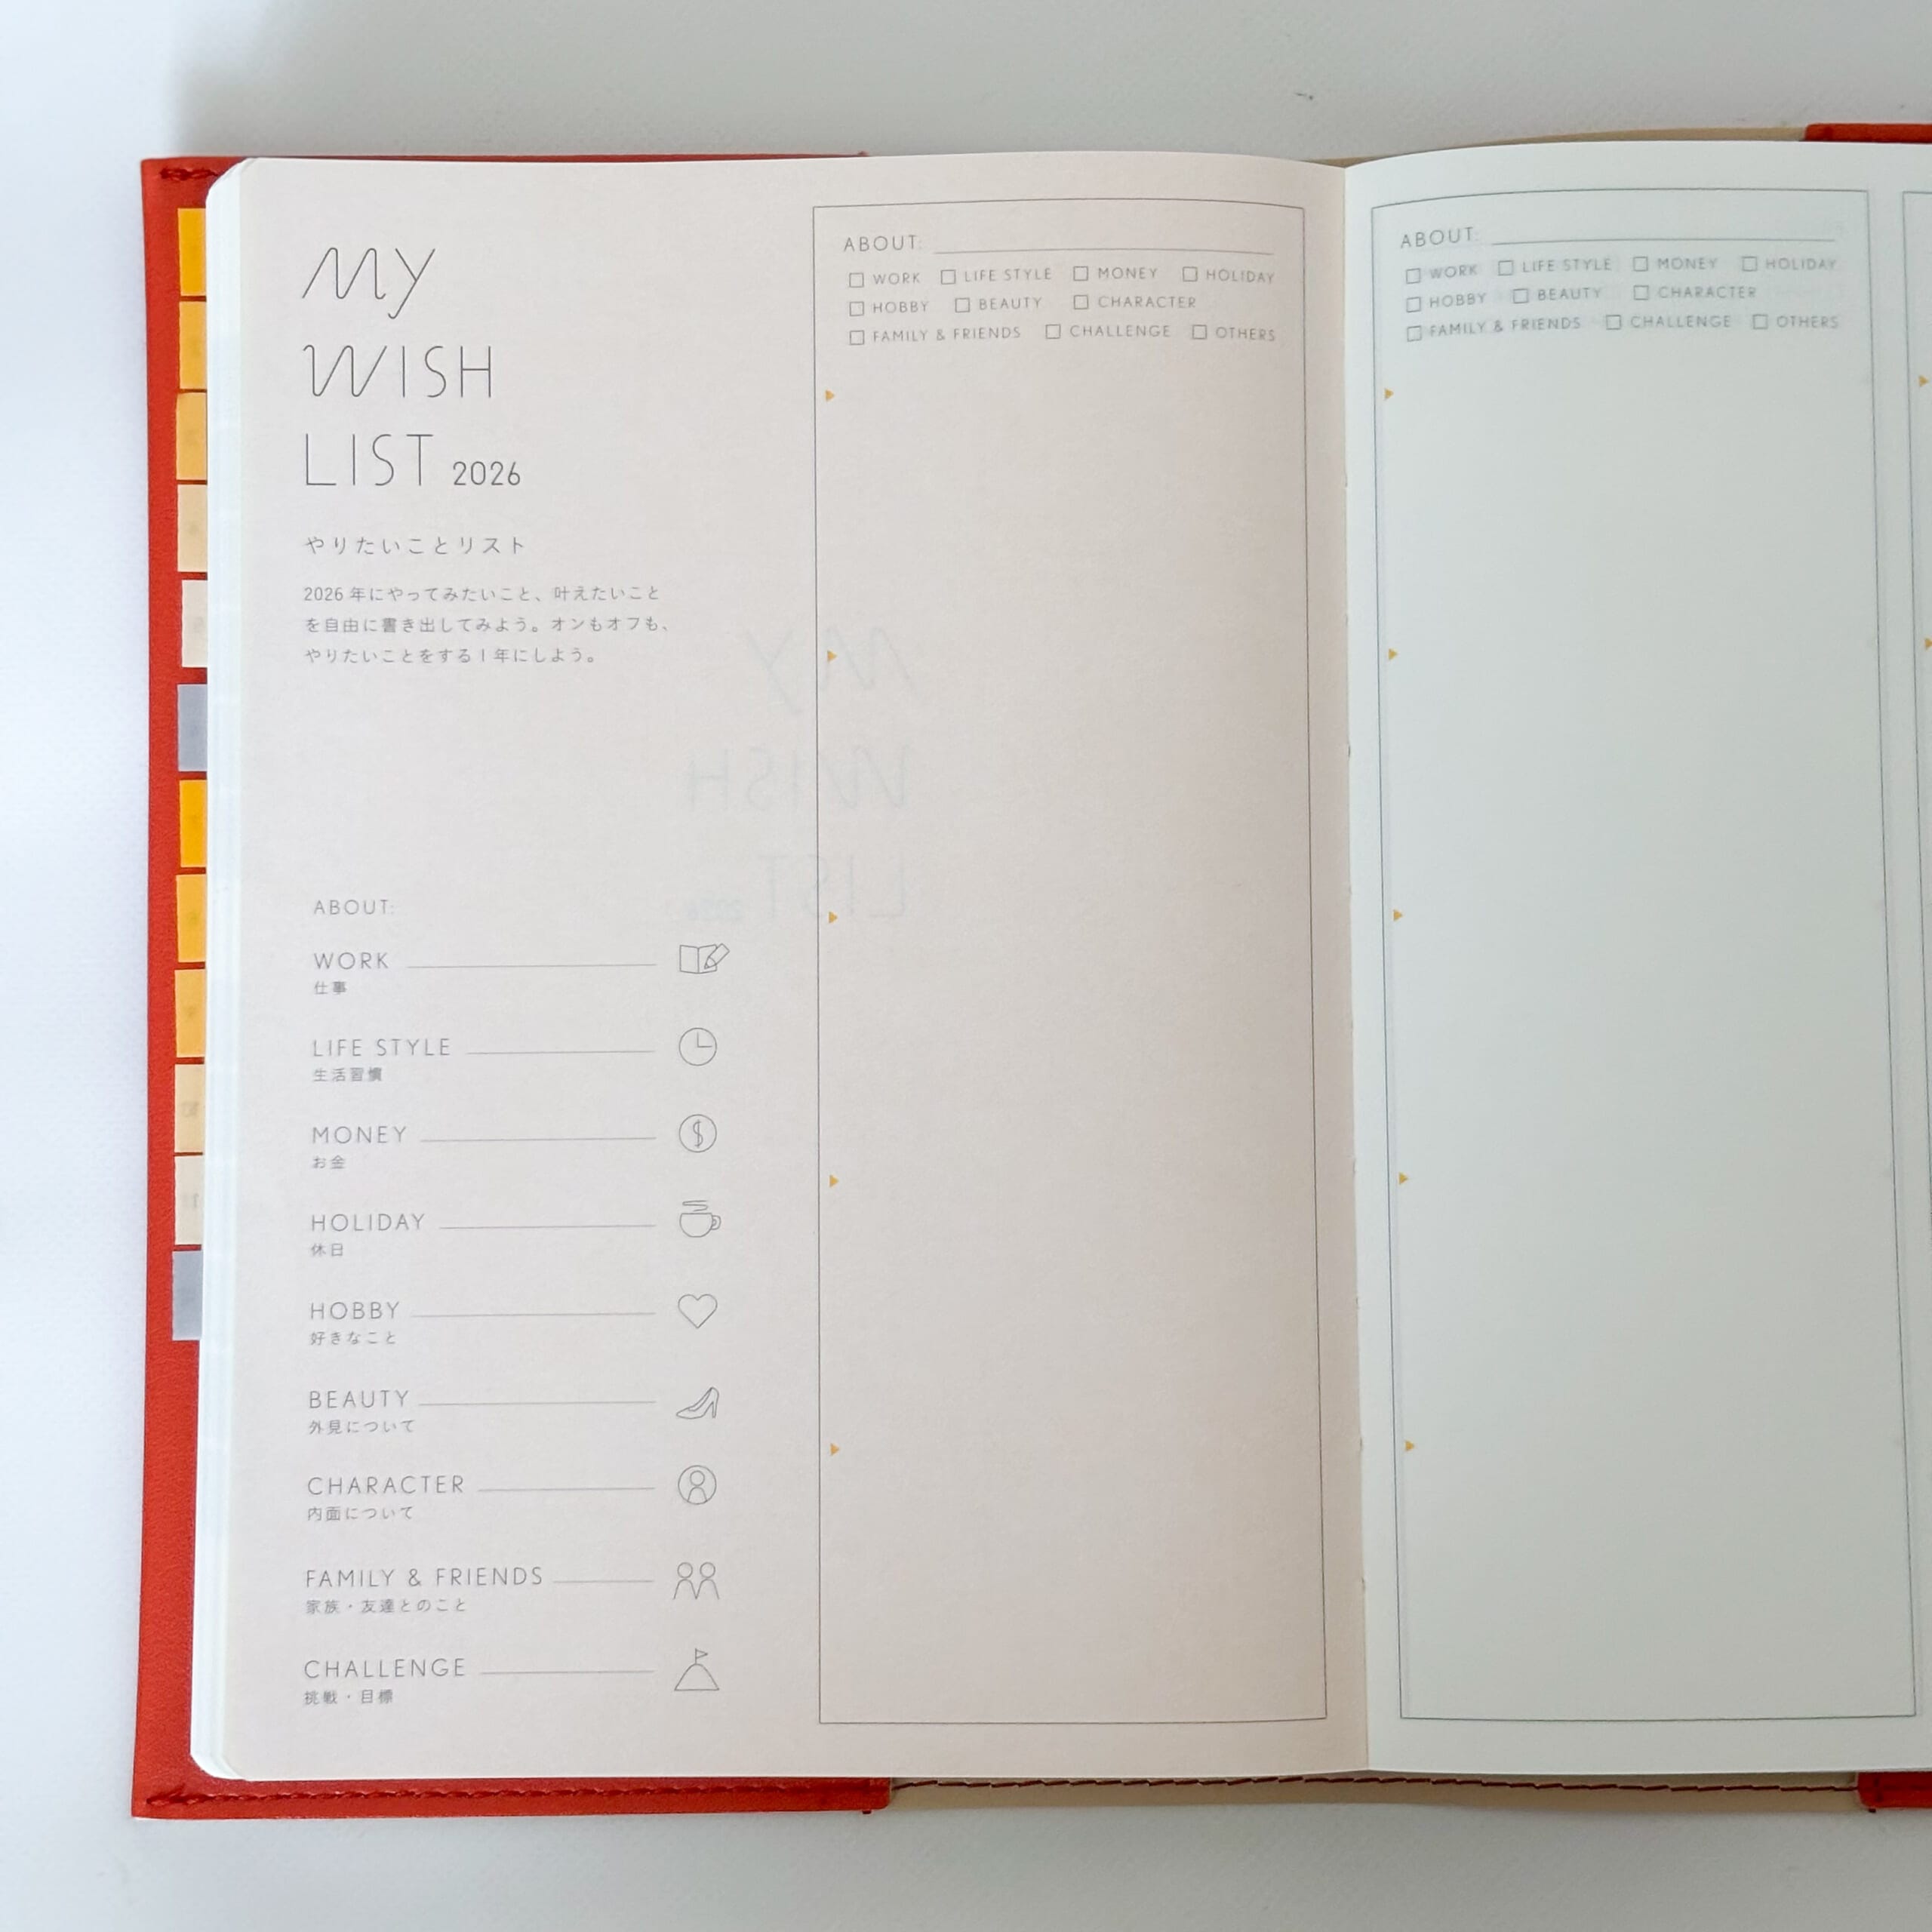 My
WISH
LIST 2026
やりたいことリスト
2026年にやってみたいこと、叶えたいこと
を自由に書き出してみよう。オンもオフも、
やりたいことをする1年にしよう。
ABOUT:
WORK
仕事
LIFE STYLE
生活習慣
MONEY
お金
HOLIDAY
休日
HOBBY
好きなこと
BEAUTY
外見について
CHARACTER
内面について
FAMILY & FRIENDS
家族・友達とのこと
CHALLENGE
挑戦・目標
ABOUT:
WORK LIFE STYLE MONEY HOLIDAY
HOBBY BEAUTY CHARACTER
FAMILY & FRIENDS CHALLENGE OTHERS
ABOUT:
WORK LIFE STYLE MONEY HOLIDAY
HOBBY BEAUTY CHARACTER
FAMILY & FRIENDS CHALLENGE OTHERS